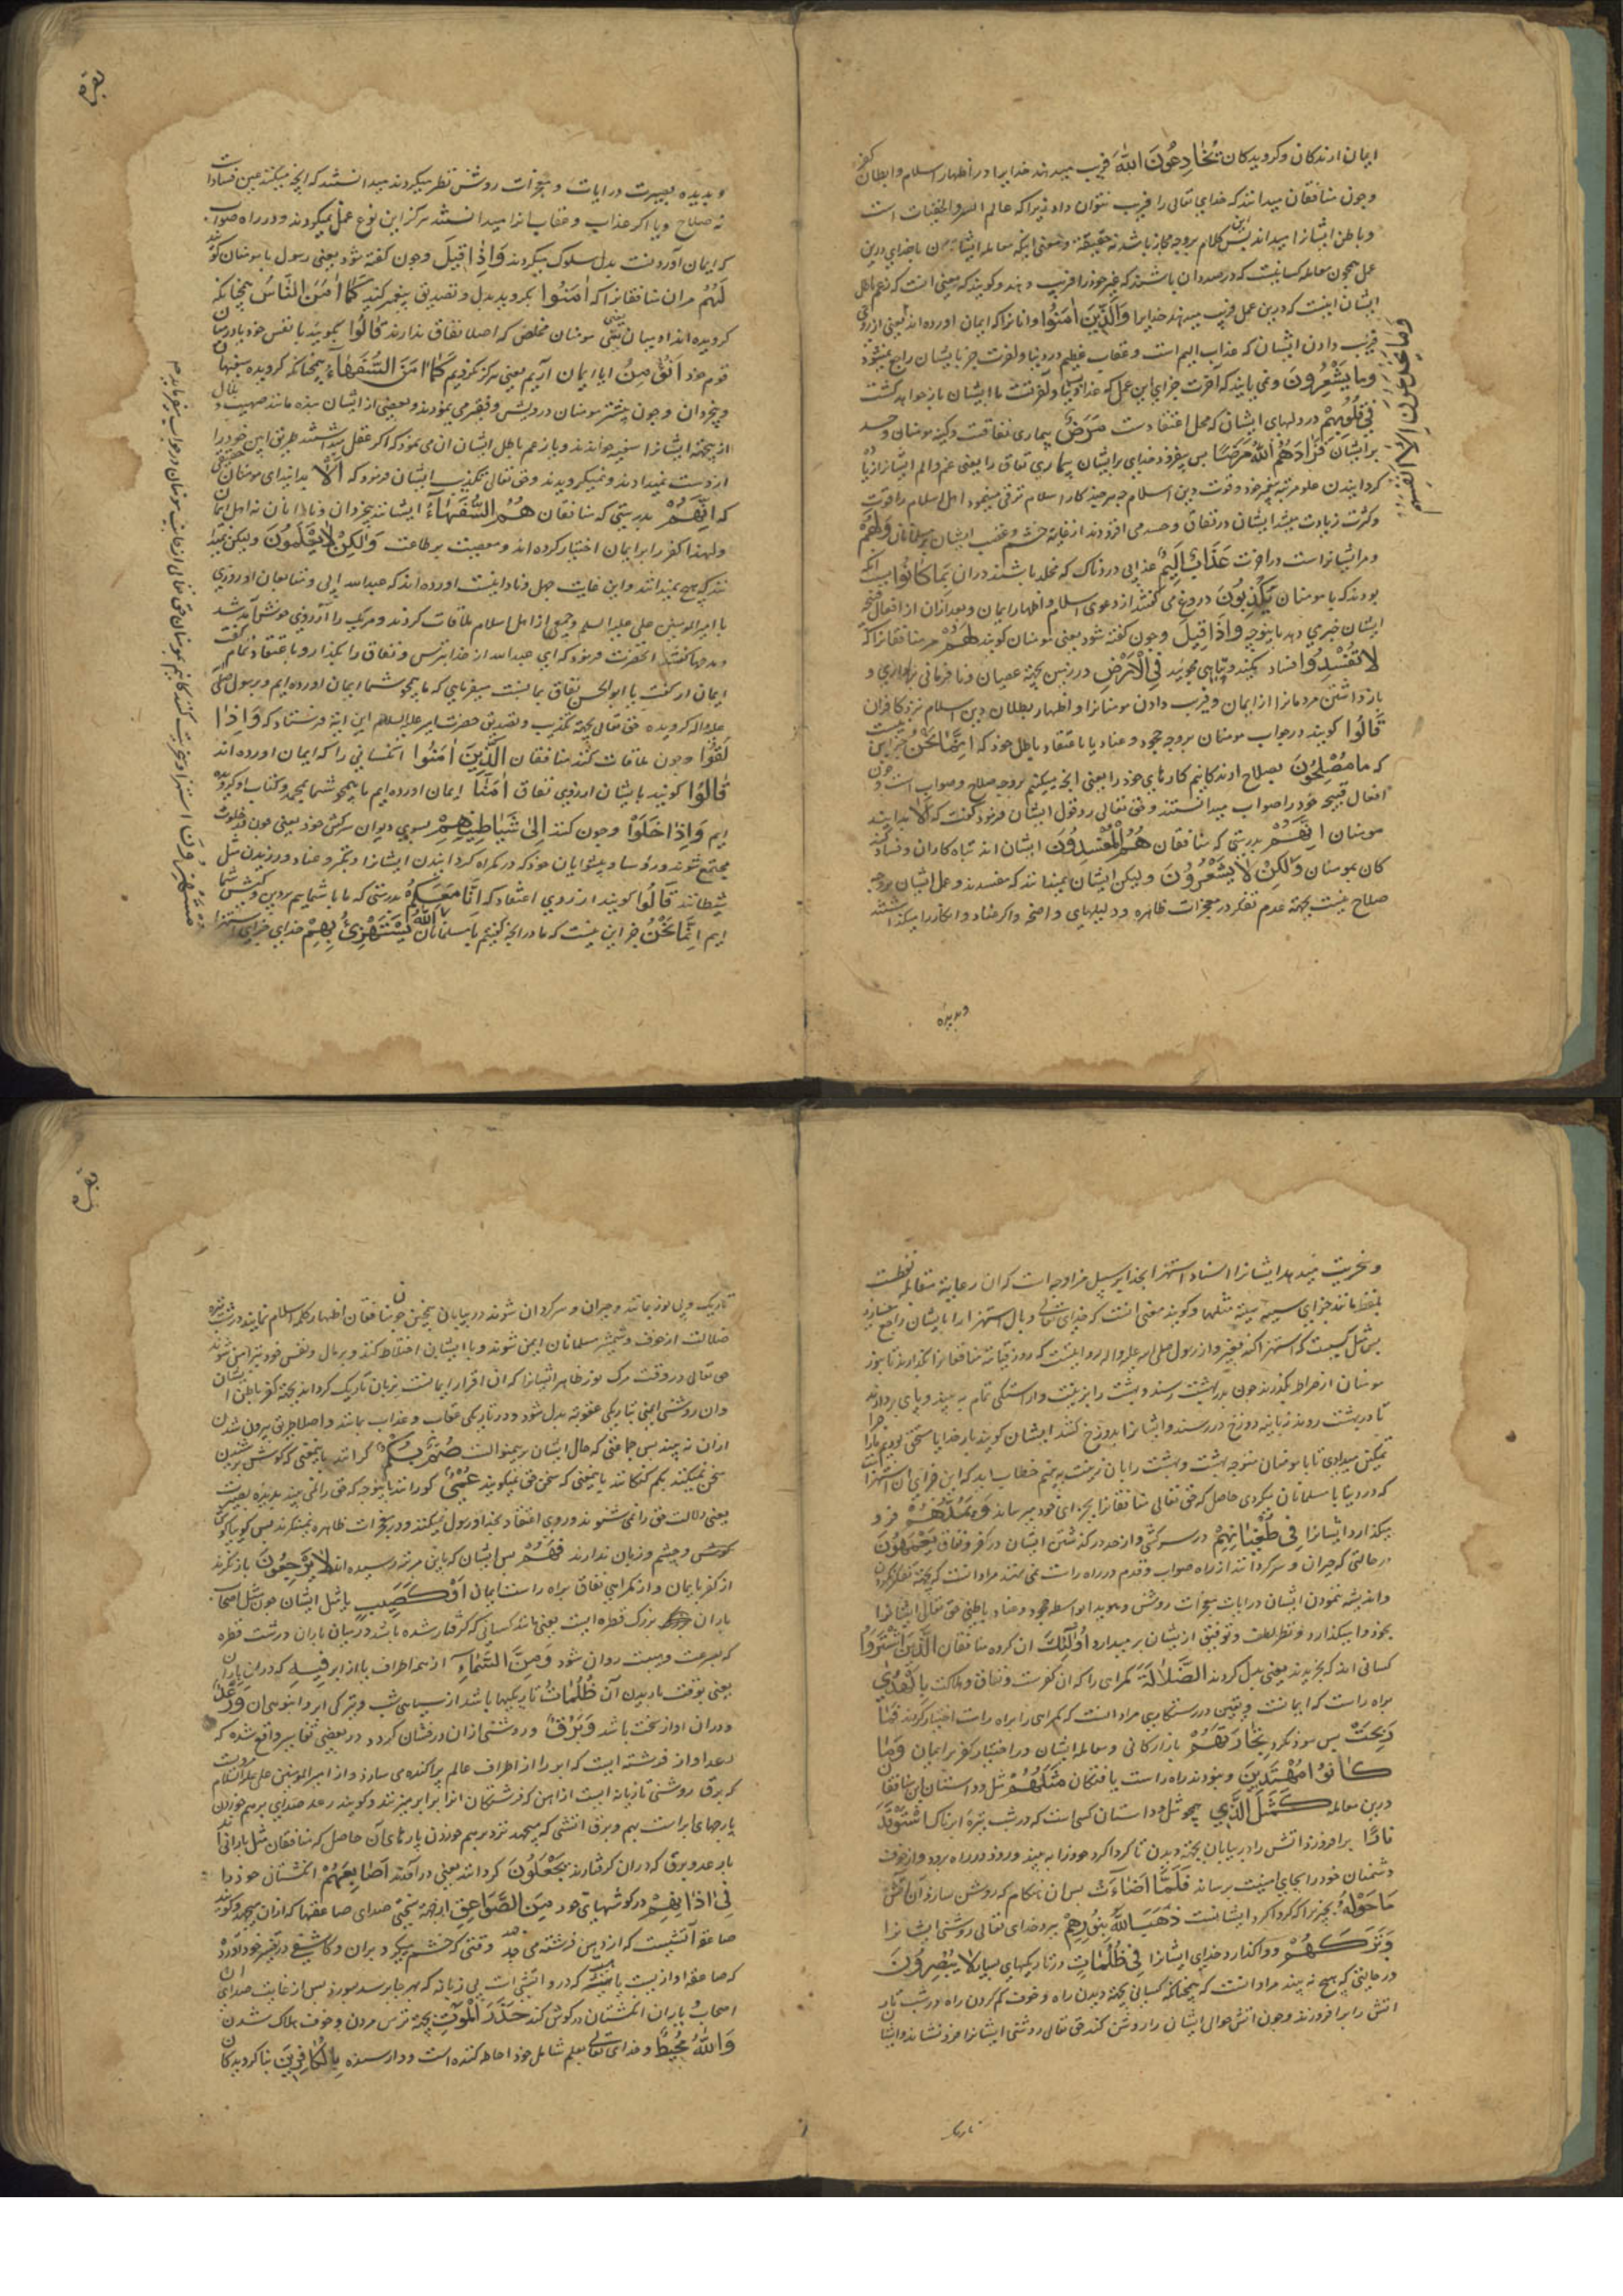 ایمان ارندکان وکرویدکان یُخَادِعُونَ اللّٰهَ فریب میدهند خدایرا در اظهار اسلام وابطان کفر
وچون منافقان میدانند که خدای تعالی را فریب نتوان داد زیرا که عالم السر والخفیات است
وباطن ایشانرا میداند پس این کلام بروجه مجاز باشد نه حقیقة ومعنی اینکه معامله ایشان با خدای درین
عمل همچون معامله کسانیست که درصدد ان باشند که غیر خود را فریب دهند وکویند که معنی انست که بزعم باطل
ایشان اینست که درین عمل فریب میدهند خدایرا وَالَّذِینَ اٰمَنُوا وانانرا که ایمان اورده اند یعنی از روی
وَمَا یَخْدَعُونَ اِلَّا اَنْفُسَهُمْ
فریب دادن ایشان که عذاب الیم است وعقاب عظیم در دنیا واخرت جز بایشان راجع نمیشود
وَمَا یَشْعُرُونَ ونمی یابند که آخرت جزای این عمل که عذاب دنیا واخرتست با ایشان باز خواهد کشت
فِی قُلُوبِهِمْ در دلهای ایشان که محل اعتقادست مَرَضٌ بیماری نفاقست وکینه مومنان وحسد
بر ایشان فَزَادَهُمُ اللّٰهُ مَرَضًا پس بیفزود خدای بر ایشان بیماری نفاق را یعنی غم والم ایشانرا زیاده
کردانیدن علو مرتبه پیغمبر خود وقوت دین اسلام چه هر چند کار اسلام ترقی مینمود اهل اسلام را قوت
وکثرت زیادت میشد ایشان در نفاق وحسد می افزودند از غایة خشم وغضب ایشان بر مسلمانان وَلَهُمْ
ومر ایشانراست در اخرت عَذَابٌ اَلِیمٌ عذابی دردناک که مخلد باشند دران بِمَا کَانُوا بسبب انکه
بودند که با مومنان یَکْذِبُونَ دروغ می کفتند از دعوی اسلام واظهار ایمان وبعد ازان از افعال قبیحه
ایشان خبری دهد باینوجه وَاِذَا قِیلَ وچون کفته شود یعنی مومنان کویند لَهُمْ مر منافقانرا که
لَا تُفْسِدُوا فساد مکنید وتباهی مجوئید فِی الْاَرْضِ در زمین بجهة عصیان ونافرمانی برداری و
باز داشتن مردمانرا از ایمان وفریب دادن مومنانرا واظهار بطلان دین اسلام نزد کافران
قَالُوا کویند در جواب مومنان بروجه جحود وعناد یا باعتقاد باطل خود که اِنَّمَا نَحْنُ جز این نیست
که ما مُصْلِحُونَ بصلاح ارندکانیم کارهای خود را یعنی انچه میکنیم بروجه صلاح وصواب است وچون
افعال قبیحه خود را صواب میدانستند وحق تعالی رد قول ایشان فرمود کفت که اَلَا بدانید
مومنان اِنَّهُمْ بدرستی که منافقان هُمُ الْمُفْسِدُونَ ایشان اند تباه کاران وفساد کنند
کان بمومنان وَلٰکِنْ لَا یَشْعُرُونَ ولیکن ایشان نمیدانند که مفسدند وعمل ایشان بروجه
صلاح نیست بجهة عدم تفکر در معجزات ظاهره ودلیلهای واضحه واکر عناد وانکار را میکذاشتند
وبدیده
بقره
وبدیده بصیرت در ایات ومعجزات روشن نظر میکردند میدانستند که انچه میکنند عین فسادست
نه صلاح ویا اکر عذاب وعقاب انرا میدانستند هرکز این نوع عمل نمیکردند ودر راه صواب
که ایمان آوردنست بدل سلوک میکردند وَاِذَا قِیلَ وچون کفته شود یعنی رسول یا مومنان کویند
لَهُمْ مران منافقانرا که اٰمِنُوا بکروید بدل وتصدیق پیغمبر کنید کَمَا اٰمَنَ النَّاسُ همچنانکه
کرویده اند ادمیان یعنی مومنان مخلص که اصلا نفاق ندارند قَالُوا کویند با نفس خود یا درمیان
قوم خود اَنُؤْمِنُ ایا ایمان آریم یعنی هرکز نکردیم کَمَا اٰمَنَ السُّفَهَاءُ همچنانکه کرویده سفیهان
وبیخردان وچون بیشتر مومنان درویش وفقیر می نمودند وبعضی از ایشان بنده مانند صهیب وبلال
از اینجهة ایشانرا سفیه خواندند ویا زعم باطل ایشان ان می نمود که اکر عقل میداشتند طریق این خود را
از دست نمیدادند ونمیکرویدند وحق تعالی تکذیب ایشان فرمود که اَلَا بدانید ای مومنان حقیقی
که اِنَّهُمْ بدرستی که منافقان هُمُ السُّفَهَاءُ ایشانند بیخردان ونادانان نه اهل ایمان
ولهذا کفر را بر ایمان اختیار کرده اند ومعصیت بر طاعت وَلٰکِنْ لَا یَعْلَمُونَ ولیکن نمیدا
نند که هیچ نمیدانند واین غایت جهل ونادانیست اورده اند که عبدالله ابی ومتابعان او روزی
با امیرالمومنین علی علیه السلم وجمعی از اهل اسلام ملاقات کردند وهر یک را از روی خوش آمد شد
ومدحها کفتند انحضرت فرمود که ای عبدالله از خدا بترس ونفاق را بکذار وباعتقاد تمام
ایمان ار کفت یا ابوالحسن نفاق بما نسبت میفرمایی که ما همچو شما ایمان اورده ایم وبرسول صلی
علیه واله کرویده حق تعالی بجهة تکذیب وتصدیق حضرت امیر علیه السلام این ایة فرستاد که وَاِذَا
لَقُوا وچون ملاقات کنند منافقان الَّذِینَ اٰمَنُوا انکسانی را که ایمان اورده اند
قَالُوا کویند بایشان از روی نفاق اٰمَنَّا ایمان اورده ایم ما همچو شما بمحمد وبکتاب او کرویده
ایم وَاِذَا خَلَوْا وچون کنند اِلٰی شَیَاطِینِهِمْ بسوی دیوان سرکش خود یعنی چون در خلوت
مجتمع شوند ورؤسا وپیشوایان خود که در کمراه کردانیدن ایشانرا وتکبر وعناد ورزیدن مثل
شیطانند قَالُوا کویند از روی اعتقاد که اِنَّا مَعَکُمْ بدرستی که ما با شماییم بر دین کیش شما
ایم اِنَّمَا نَحْنُ جز این نیست که ما در انچه کفتیم با مسلمانان اَللّٰهُ یَسْتَهْزِئُ بِهِمْ خدای جزای استهزا
مُسْتَهْزِؤُنَ استهزا وسخریت کنندکانیم بمومنان
وسخریت میدهد ایشانرا اسناد استهزا بخدا بر سبیل مزاوجه است که ان رعایة مقابله لفظست
بلفظ مانند جزای سیئه سیئة مثلها وکویند معنی انست که خدای تعالی وبال استهزا را بایشان راجع میسازد
مومنان از صراط بکذرند چون بدر بهشت رسند وبهشت را بزینت واراستکی تمام به بینند
تا در بهشت روند زبانیه دوزخ در رسند وایشانرا بدوزخ کشند ایشان کویند بار خدایا
که در دنیا با مسلمانان میکردی حاصل که حق تعالی منافقانرا بجزای خود میرساند وَیَمُدُّهُمْ وفرو
میکذارد ایشانرا فِی طُغْیَانِهِمْ در سرکشی واز حد درکذشتن ایشان در کفر ونفاق یَعْمَهُونَ
در حالتی که حیران وسرکردانند از راه صواب وقدم در راه راست نمی نهند مراد انست که بجهة تفکر نکردن
واندیشه ننمودن ایشان در ایات ومعجزات روشن وهویدا بواسطه جحود وعناد باطنی حق تعالی ایشانرا
بخود وا میکذارد ونظر لطف وتوفیق از یشان بر میدارد اُولٰئِکَ ان کروه منافقان الَّذِینَ اشْتَرَوُا
کسانی اند که بخریدند یعنی بدل کردند الضَّلَالَةَ کمراهی را که ان کفرست ونفاق وهلاکت بِالْهُدٰی
براه راست که ایمانست ویقین ودرستکاریی مراد انست که کمراهی را براه راست اختیار کردند فَمَا
رَبِحَتْ پس سود نکرد تِجَارَتُهُمْ بازارکانی ومعامله ایشان در اختیار کفر بر ایمان وَمَا
کَانُوا مُهْتَدِینَ ونبودند راه راست یافتکان مَثَلُهُمْ مثل وداستان این منافقان
درین معامله کَمَثَلِ الَّذِی همچو مثل وداستان کسی است که در شب تیره ابرناک اسْتَوْقَدَ
نَارًا برافروزد اتش را در بیابان بجهة دیدن تا کرداکرد خود را به بیند وروزد در راه برود واز خوف
دشمنان خود را بجای امنیت برساند فَلَمَّا اَضَاءَتْ پس ان هنکام که روشن سازد آن آتش
مَا حَوْلَهُ هر چیز را که کرداکرد ایشانست ذَهَبَ اللّٰهُ بِنُورِهِمْ ببرد خدای تعالی روشنی ایشانرا
وَتَرَکَهُمْ وواکذارد خدای ایشانرا فِی ظُلُمَاتٍ در تاریکیهای بسیار لَا یُبْصِرُونَ
در حالتی که هیچ نه بینند مراد انست که همچنانکه کسانی بجهة دیدن راه وخوف کم کردن راه در شب تار
اتش را برافروزند وچون اتش حوالی ایشان را روشن کند حق تعالی روشنی ایشانرا فرو نشاند وایشان
تاریک
بقره
تاریک وبی نور مانند وحیران وسرکردان شوند در بیابان همچنین چون منافقان اظهار کلمه اسلام نمایند
ضلالت از خوف شمشیر مسلمانان ایمن شوند وبا ایشان اختلاط کنند وبر مال ونفس خود نیز امین شوند
حق تعالی در وقت مرک نور ظاهر ایشانرا که ان اقرار ایمانست بزبان تاریک کرداند بجهة کفر باطن ایشان
وان روشنی ایمنی بتاریکی عقوبة بدل شود ودر تاریکی عقاب وعذاب بمانند واصلا طریق بیرون شدن
ازان نه بینند پس جماعتی که حال ایشان برینمنوالست صُمٌّ بُکْمٌ کرانند باینمعنی که کوش بر شنیدن
سخن نمیکنند بکم کنکانند باینمعنی که سخن حق نمیکویند عُمْیٌ کورانند باینوجه که حق را نمی بینند بدیده بصیرت
یعنی دلالت حق را نمی شنوند وروی اعتقاد بخدا ورسول نمیکنند ودر معجزات ظاهره نمینکرند پس کویا که
کوش وچشم وزبان ندارند فَهُمْ پس ایشان که باین مرتبه رسیده اند لَا یَرْجِعُونَ باز نکردند
از کفر بایمان واز کمراهی نفاق براه راست ایمان اَوْ کَصَیِّبٍ یا مثل ایشان چون مثل اصحاب
باران بزرک قطره است یعنی مانند کسانی که کرفتار شده باشند در میان باران درشت قطره
که بسرعت وسبت روان شود مِنَ السَّمَاءِ از همه اطراف یا از ابر فِیهِ که دران باران
یعنی بوقت باریدن آن ظُلُمَاتٌ تاریکیها باشد از سیاهی شب وتیرکی ابر وانبوهی ان وَرَعْدٌ
ودران اواز سخت باشد وَبَرْقٌ وروشنی ازان درفشان کردد ودر بعضی تفاسیر واقع شده که
رعد اواز فرشته ایست که ابر را از اطراف عالم پراکنده می سازد واز امیرالمومنین علی علیه السلام مرویست
که برق روشنی تازیانه ایست از اهن که فرشتکان انرا بر ابر میزنند وکویند رعد صدای برهم خوردن
پارچهای ابر است بهم وبرق اتشی که میجهد نزد برهم خوردن پارهای آن حاصل که منافقان مثل بارانی اند
با رعد وبرق که دران کرفتارند یَجْعَلُونَ کردانند یعنی در آورند اَصَابِعَهُمْ انکشتان خود را
فِی اٰذَانِهِمْ در کوشهای خود مِنَ الصَّوَاعِقِ از جهة سختی صدای صاعقها که ازان میجهد وکویند
صاعقه آتشیست که از دهن فرشته می جهد وقتی که خشم میکیرد بران وکاشفی در تفسیر خود آورده
که صاعقه اوازیست با هیبت که در و اتشی است بی زبانه که بهر جا برسد بسوزد پس از غایت صدای ان
اصحاب باران انکشتان در کوش کنند حَذَرَ الْمَوْتِ بجهة ترس مردن وخوف هلاک شدن
وَاللّٰهُ مُحِیطٌ وخدای تعالی بعلم شامل خود احاطه کننده است ودارسنده بِالْکَافِرِینَ بناکرویدکان